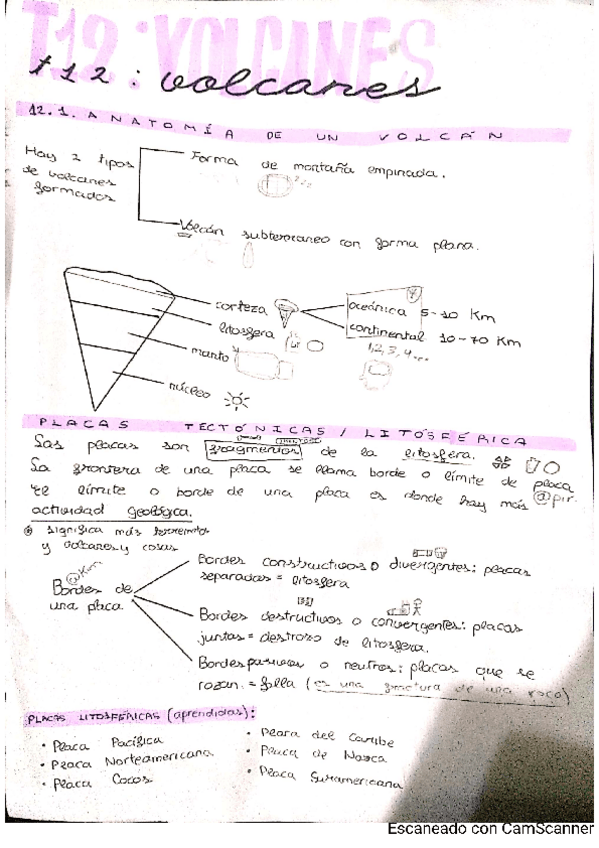 T12: VOLCANES
t12: volcanes
12.1. ANATOMÍA DE UN VOLCÁN
Hay 2 tipos
de volcanes
formados
Forma de montaña empinada.
Volcán subterraneo con forma plana.
corteza
oceánica 5-10 Km
continental 10-70 Km
litosfera
1,2,3,4...
manto
núcleo
PLACAS TECTÓNICAS / LITOSFÉRICA
Las placas son fragmentos de la litosfera.
La frontera de una placa se llama borde o límite de placa
El límite o borde de una placa es donde hay más
@pir.
actividad geológica.
significa más terremotos
y volcanes y cosas
Bordes de
una placa
Bordes constructivos o divergentes: placas
separadas = litosfera
Bordes destructivos o convergentes: placas
juntas = destrozo de litosfera.
Bordes pasivos o neutros: placas que se
rozan. = falla (es una fractura de una roca)
PLACAS LITOSFÉRICAS (aprendidas):
• Placa Pacífica
• Placa Norteamericana
• Placa Cocos
• Placa del Caribe
• Placa de Nasca
• Placa Suramericana
Escaneado con CamScanner